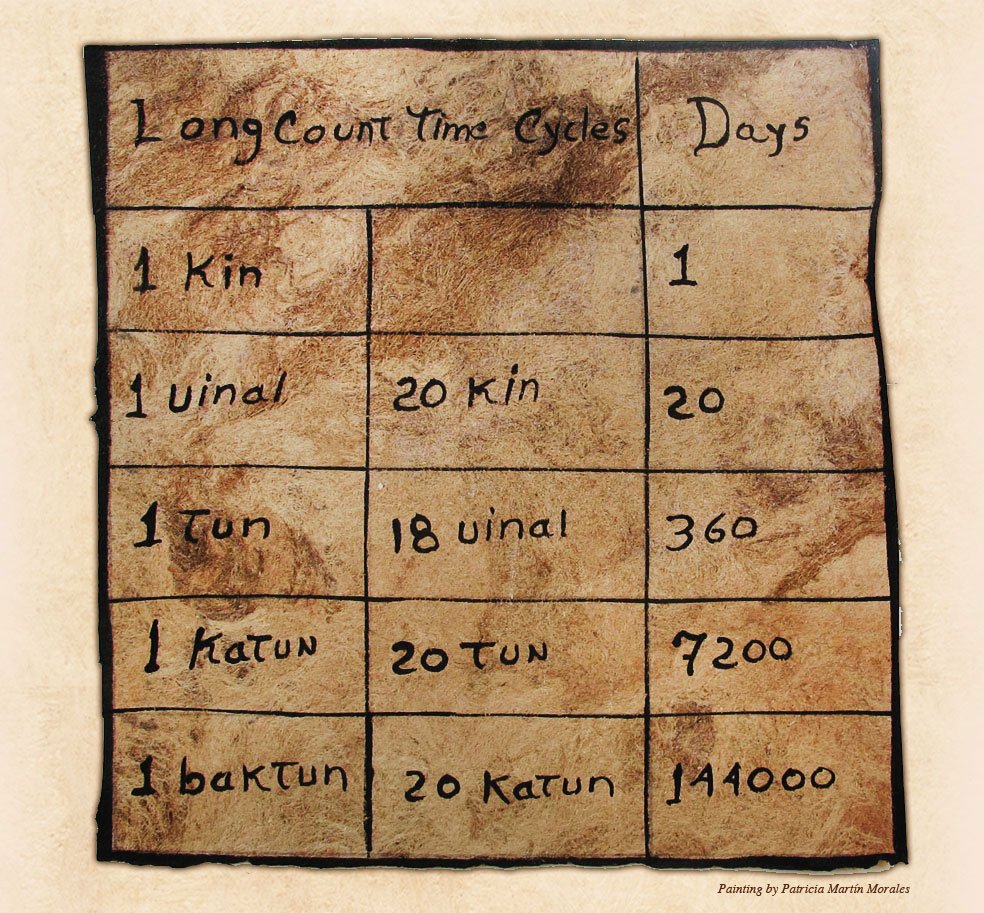 Long Count Time Cycles Days
1 Kin 1
1 uinal 20 Kin 20
1 Tun 18 uinal 360
1 Katun 20 Tun 7200
1 baktun 20 Katun 144000
Painting by Patricia Martín Morales